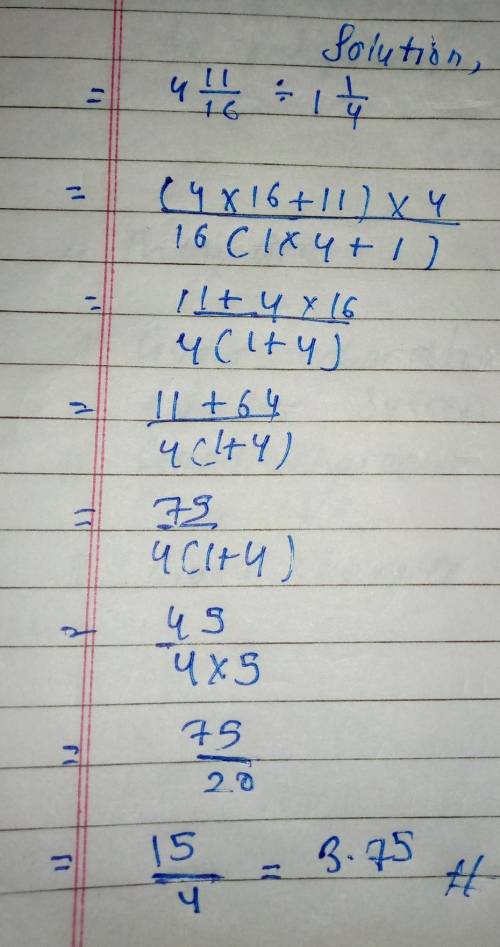 Solution,
= 4 11/16 ÷ 1 1/4
= (4 × 16 + 11) × 4 / 16 (1 × 4 + 1)
= 11 + 4 × 16 / 4 (1 + 4)
= 11 + 64 / 4 (1 + 4)
= 75 / 4 (1 + 4)
= 45 / 4 × 5
= 75 / 20
= 15 / 4 = 3.75 #